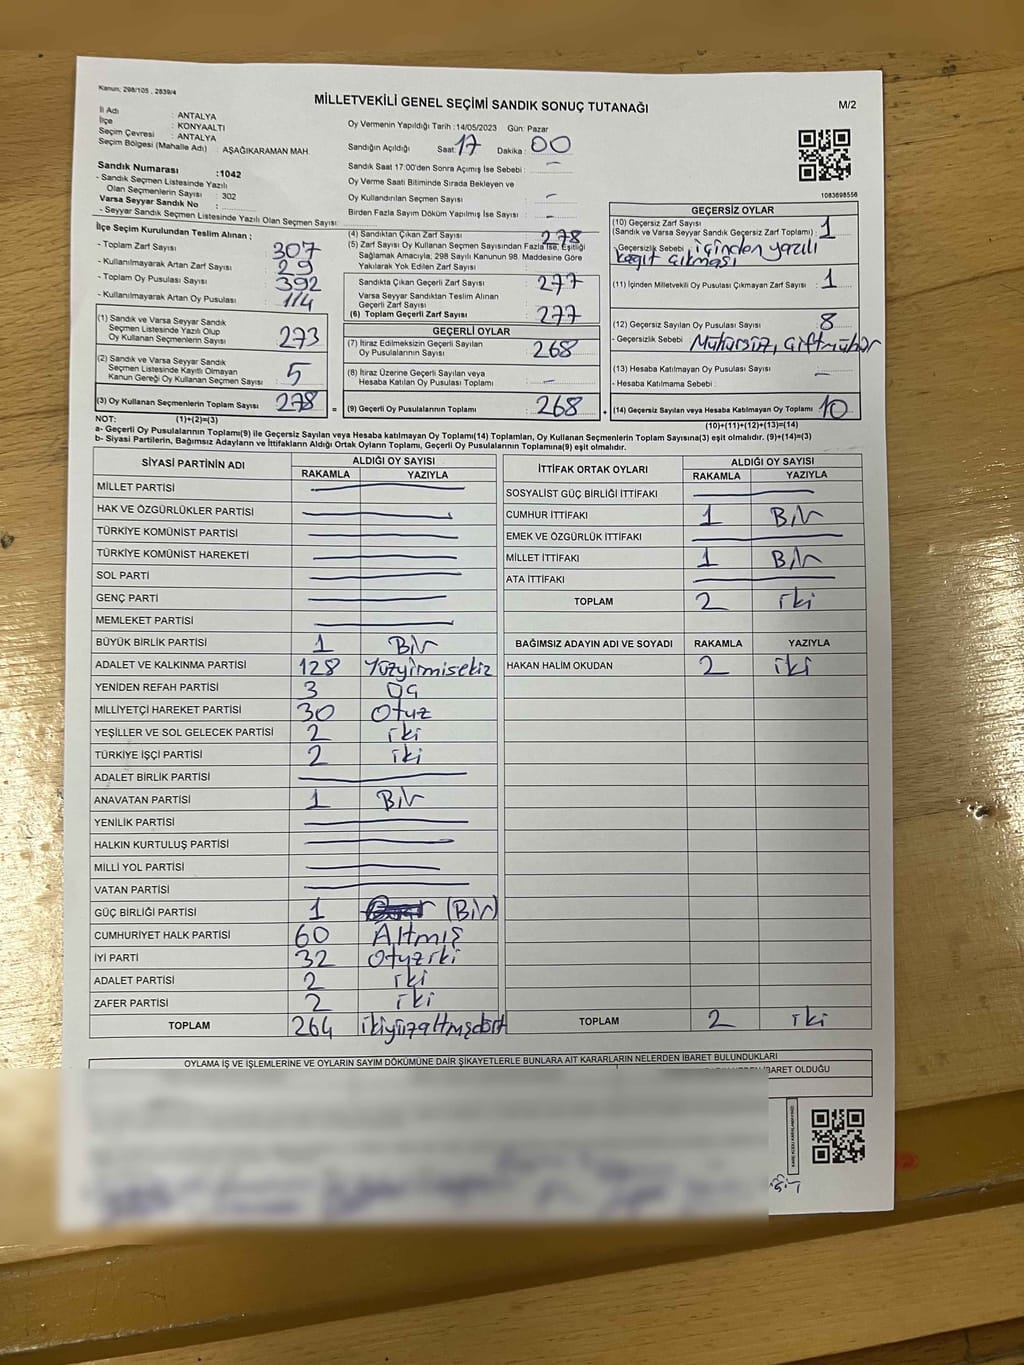 Kanun, 298/105 , 2839/4
MİLLETVEKİLİ GENEL SEÇİMİ SANDIK SONUÇ TUTANAĞI
M/2
İl Adı : ANTALYA
İlçe : KONYAALTI
Seçim Çevresi : ANTALYA
Seçim Bölgesi (Mahalle Adı) : AŞAĞIKARAMAN MAH.
Sandık Numarası :1042
- Sandık Seçmen Listesinde Yazılı
Olan Seçmenlerin Sayısı : 302
Varsa Seyyar Sandık No :
- Seyyar Sandık Seçmen Listesinde Yazılı Olan Seçmen Sayısı :
Oy Vermenin Yapıldığı Tarih :14/05/2023 Gün: Pazar
Sandığın Açıldığı Saat: 17 Dakika : 00
Sandık Saat 17:00'den Sonra Açımış İse Sebebi : —
Oy Verme Saati Bitiminde Sırada Bekleyen ve
Oy Kullandırılan Seçmen Sayısı : —
Birden Fazla Sayım Döküm Yapılmış İse Sayısı : —
1083698556
İlçe Seçim Kurulundan Teslim Alınan ;
- Toplam Zarf Sayısı : 307
- Kullanılmayarak Artan Zarf Sayısı : 29
- Toplam Oy Pusulası Sayısı : 392
- Kullanılmayarak Artan Oy Pusulası : 114
(1) Sandık ve Varsa Seyyar Sandık
Seçmen Listesinde Yazılı Olup
Oy Kullanan Seçmenlerin Sayısı : 273
(2) Sandık ve Varsa Seyyar Sandık
Seçmen Listesinde Kayıtlı Olmayan
Kanun Gereği Oy Kullanan Seçmen Sayısı : 5
(3) Oy Kullanan Seçmenlerin Toplam Sayısı : 278
(4) Sandıktan Çıkan Zarf Sayısı : 278
(5) Zarf Sayısı Oy Kullanan Seçmen Sayısından Fazla İse, Eşitliği
Sağlamak Amacıyla, 298 Sayılı Kanunun 98. Maddesine Göre
Yakılarak Yok Edilen Zarf Sayısı :
Sandıkta Çıkan Geçerli Zarf Sayısı : 277
Varsa Seyyar Sandıktan Teslim Alınan
Geçerli Zarf Sayısı :
(6) Toplam Geçerli Zarf Sayısı : 277
GEÇERLİ OYLAR
(7) İtiraz Edilmeksizin Geçerli Sayılan
Oy Pusulalarının Sayısı : 268
(8) İtiraz Üzerine Geçerli Sayılan veya
Hesaba Katılan Oy Pusulası Toplamı : —
= (9) Geçerli Oy Pusulalarının Toplamı : 268 +
GEÇERSİZ OYLAR
(10) Geçersiz Zarf Sayısı
(Sandık ve Varsa Seyyar Sandık Geçersiz Zarf Toplamı) : 1
- Geçersizlik Sebebi : içinden yazılı
kağıt çıkması
(11) İçinden Milletvekili Oy Pusulası Çıkmayan Zarf Sayısı : 1
(12) Geçersiz Sayılan Oy Pusulası Sayısı : 8
- Geçersizlik Sebebi : Mühürsüz, çiftmühür
(13) Hesaba Katılmayan Oy Pusulası Sayısı : —
- Hesaba Katılmama Sebebi :
(14) Geçersiz Sayılan veya Hesaba Katılmayan Oy Toplamı : 10
NOT: (1)+(2)=(3)
(10)+(11)+(12)+(13)=(14)
a- Geçerli Oy Pusulalarının Toplamı(9) ile Geçersiz Sayılan veya Hesaba katılmayan Oy Toplamı(14) Toplamları, Oy Kullanan Seçmenlerin Toplam Sayısına(3) eşit olmalıdır. (9)+(14)=(3)
b- Siyasi Partilerin, Bağımsız Adayların ve İttifakların Aldığı Ortak Oyların Toplamı, Geçerli Oy Pusulalarının Toplamına(9) eşit olmalıdır.
SİYASİ PARTİNİN ADI ALDIĞI OY SAYISI
RAKAMLA YAZIYLA
MİLLET PARTİSİ
HAK VE ÖZGÜRLÜKLER PARTİSİ
TÜRKİYE KOMÜNİST PARTİSİ
TÜRKİYE KOMÜNİST HAREKETİ
SOL PARTİ
GENÇ PARTİ
MEMLEKET PARTİSİ
BÜYÜK BİRLİK PARTİSİ 1 Bir
ADALET VE KALKINMA PARTİSİ 128 Yüzyirmisekiz
YENİDEN REFAH PARTİSİ 3 Üç
MİLLİYETÇİ HAREKET PARTİSİ 30 Otuz
YEŞİLLER VE SOL GELECEK PARTİSİ 2 iki
TÜRKİYE İŞÇİ PARTİSİ 2 iki
ADALET BİRLİK PARTİSİ
ANAVATAN PARTİSİ 1 Bir
YENİLİK PARTİSİ
HALKIN KURTULUŞ PARTİSİ
MİLLİ YOL PARTİSİ
VATAN PARTİSİ
GÜÇ BİRLİĞİ PARTİSİ 1 (Bir)
CUMHURİYET HALK PARTİSİ 60 Altmış
İYİ PARTİ 32 Otuziki
ADALET PARTİSİ 2 iki
ZAFER PARTİSİ 2 iki
TOPLAM 264 ikiyüzaltmışdört
İTTİFAK ORTAK OYLARI ALDIĞI OY SAYISI
RAKAMLA YAZIYLA
SOSYALİST GÜÇ BİRLİĞİ İTTİFAKI
CUMHUR İTTİFAKI 1 Bir
EMEK VE ÖZGÜRLÜK İTTİFAKI
MİLLET İTTİFAKI 1 Bir
ATA İTTİFAKI
TOPLAM 2 iki
BAĞIMSIZ ADAYIN ADI VE SOYADI RAKAMLA YAZIYLA
HAKAN HALİM OKUDAN 2 iki
TOPLAM 2 iki
OYLAMA İŞ VE İŞLEMLERİNE VE OYLARIN SAYIM DÖKÜMÜNE DAİR ŞİKAYETLERLE BUNLARA AİT KARARLARIN NELERDEN İBARET BULUNDUKLARI
İBARET OLDUĞU